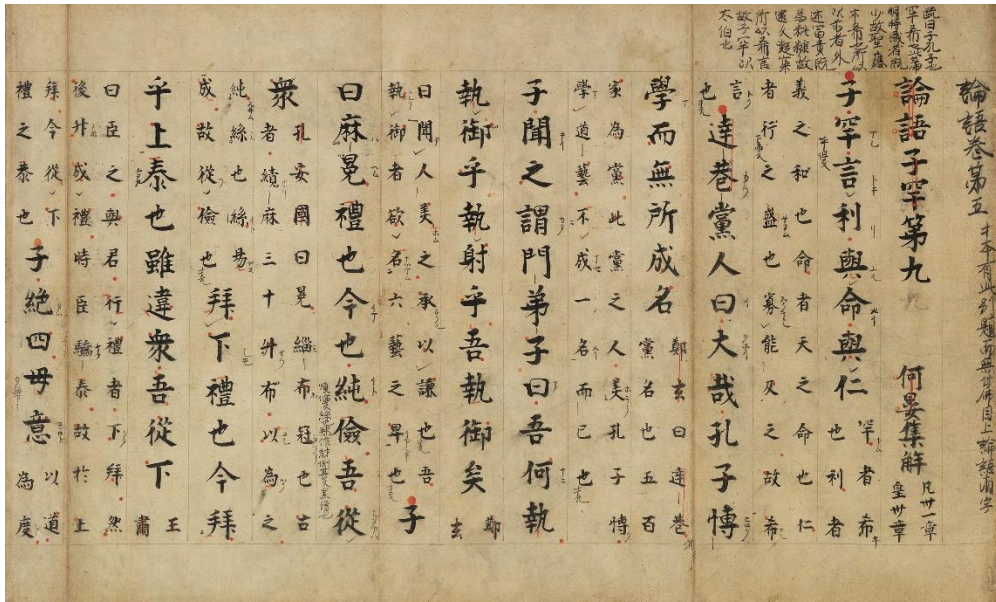 疏曰子孔子也
罕希也此篇
明時感者既
少故聖應
亦希也所以
次前者外
遠冨貴既
為粃糠故
還反凝寂
所以希言
故子罕次
太伯也
論語卷第五 才本有此別題而無 上論語兩字
論語子罕第九 何晏集解 凡卅一章
皇卅章
子罕言利與命與仁 罕者希
也利者
義之和也命者天之命也仁
者行之盛也寡能及之故希
言
也 達巷黨人曰大哉孔子博
學而無所成名 鄭玄曰達巷
黨名也五百
家為黨此黨之人美孔子博
學道藝不成一名而已也
子聞之謂門弟子曰吾何執
執御乎執射乎吾執御矣 鄭
玄
曰聞人美之承以謙也吾
執御者欲名六藝之卑也 子
曰麻冕禮也今也純儉吾從
衆 孔安國曰冕緇布冠也古
者績麻三十升布以為之
純絲也絲易
成故從儉也 拜下禮也今拜
乎上泰也雖違衆吾從下 王
肅
曰臣之與君行禮者下拜然
後升成禮時臣驕泰故於上
拜今從下
禮之恭也 子絶四毋意 以道
為度